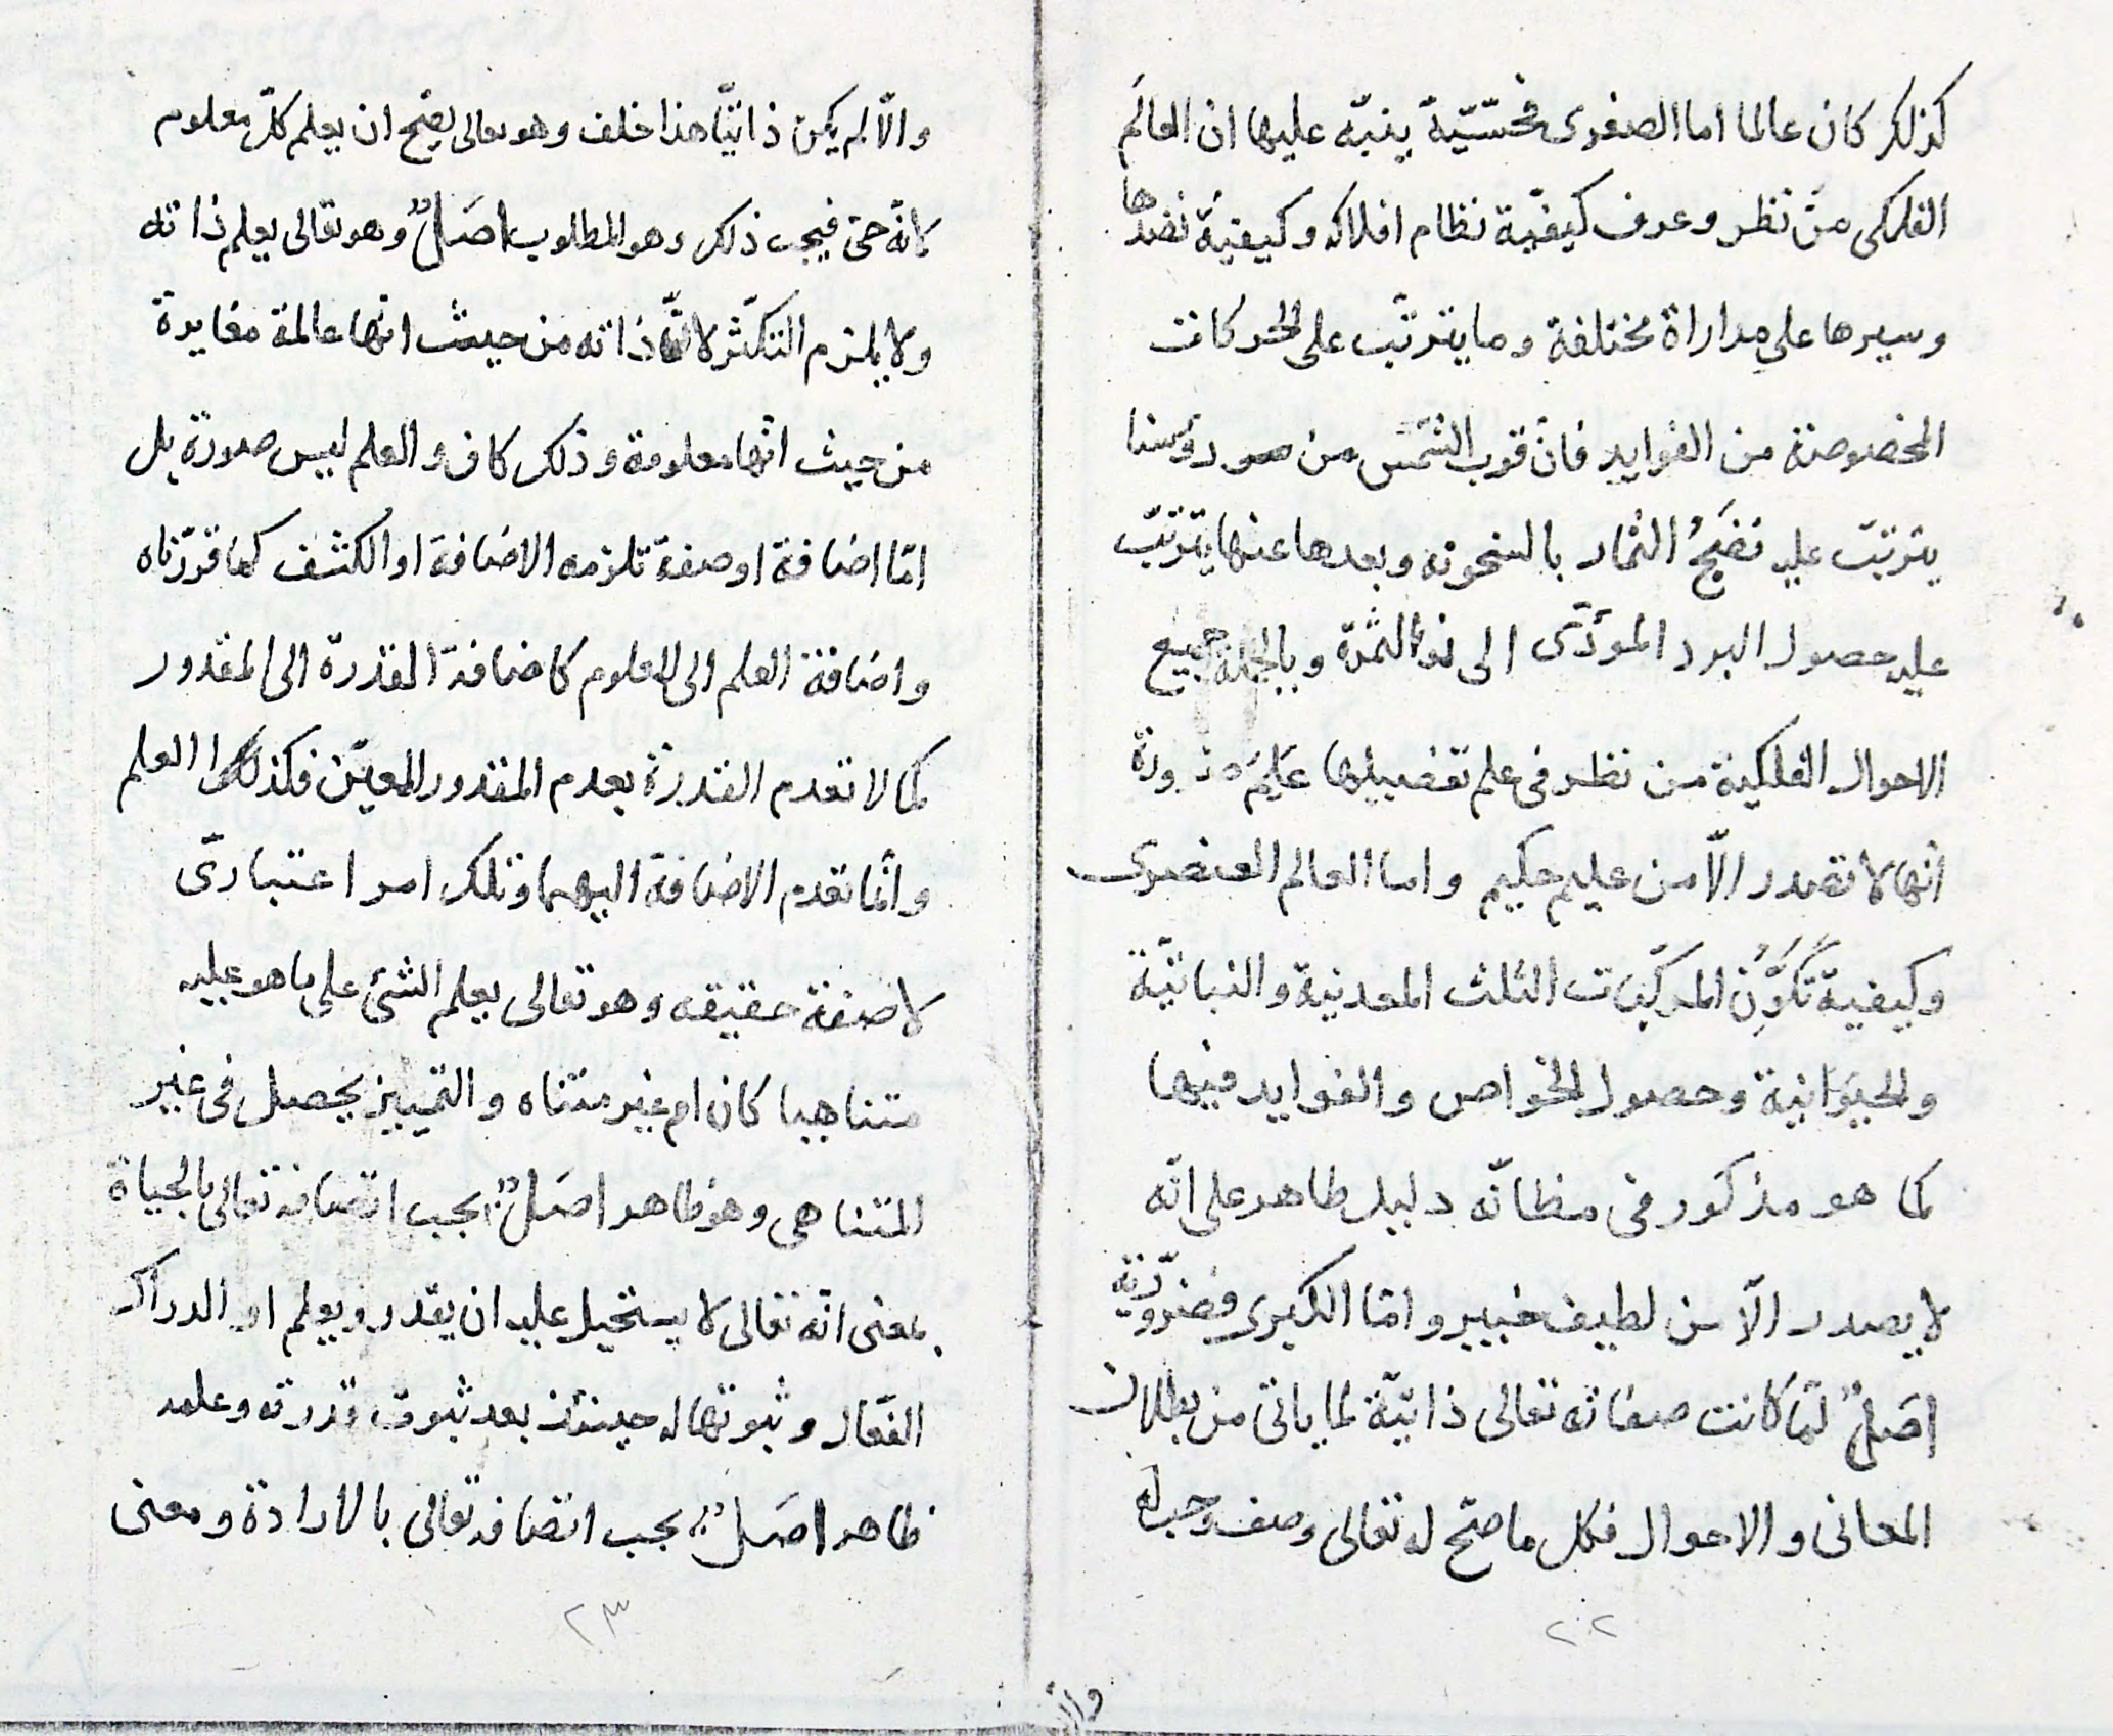 كذلك كان عالما اما الصغرى فحسّيّة ينبّه عليها ان العالم
الفلكى من نظر وعرف كيفيّة نظام افلاكه وكيفية نضدها
وسيرها على مداراة مختلفة وما يترتّب على الحركات
المخصوصة من الفوايد فان قرب الشمس من رؤسنا
يترتّب عليه نضج الثمار بالسخونه وبعدها عنها يترتّب
عليه حصول البرد المودّى الى الثمرة وبالجملة جميع
الاحوال الفلكية من نظر فى علم تفصيلها عَلِمَ
انها لا تصدر الّا من عليم حكيم واما العالم العنصرى
وكيفية تكَوُّن المركّبات الثلث المعدنية والنباتيّة
والحيَوَانية وحصول الخواص والفوايد فيها
كما هو مذكور فى مظانّه دليل ظاهر على انّه
لا يصدر الّا من لطيف خبير وامّا الكبرى فضروريّة
اصَلٌ لمّا كانت صفاته تعالى ذاتيّة لما ياتى من بطلان
المعانى والاحوال فكل ما صحّ له تعالى وصف وجب له
٢٢
والّا لم يكن ذاتيّا هذا خلف وهو تعالى يصح ان يعلم كلّ معلوم
لانّه حىّ فيجب ذلك وهو المطلوب اصَلٌ وهو تعالى يعلم ذاته
ولا يلزم التكثّر لانّ ذاته من حيث انها عالمة مغايرة
من حيث انّها معلومة وذلك كاف والعلم ليس صورة بل
امّا اضافة او صفة تلزمه الاضافة او الكشف كما قرّرناه
واضافة العلم الى المعلوم كاضافة القدرة الى المقدور
كما لا تعدم القدرة بعدم المقدور المعيّن فكذلك العلم
وانّما تعدم الاضافة اليهما وتلك امر اعتبارىّ
لا صفة حقيقه وهو تعالى يعلم الشئ على ما هو عليه
متناهيا كان ام غير متناه والتمييز يحصل فى غير
المتناهى وهو ظاهر اصَلٌ يجب اتصافه تعالى بالحياة
بمعنى انّه تعالى لا يستحيل عليه ان يقدر ويعلم او الدراك
الفعّال وثبوتها له حينئذ بعد ثبوت قدرته وعلمه
ظاهر اصَلٌ يجب اتصافه تعالى بالارادة ومعنى
٢٣